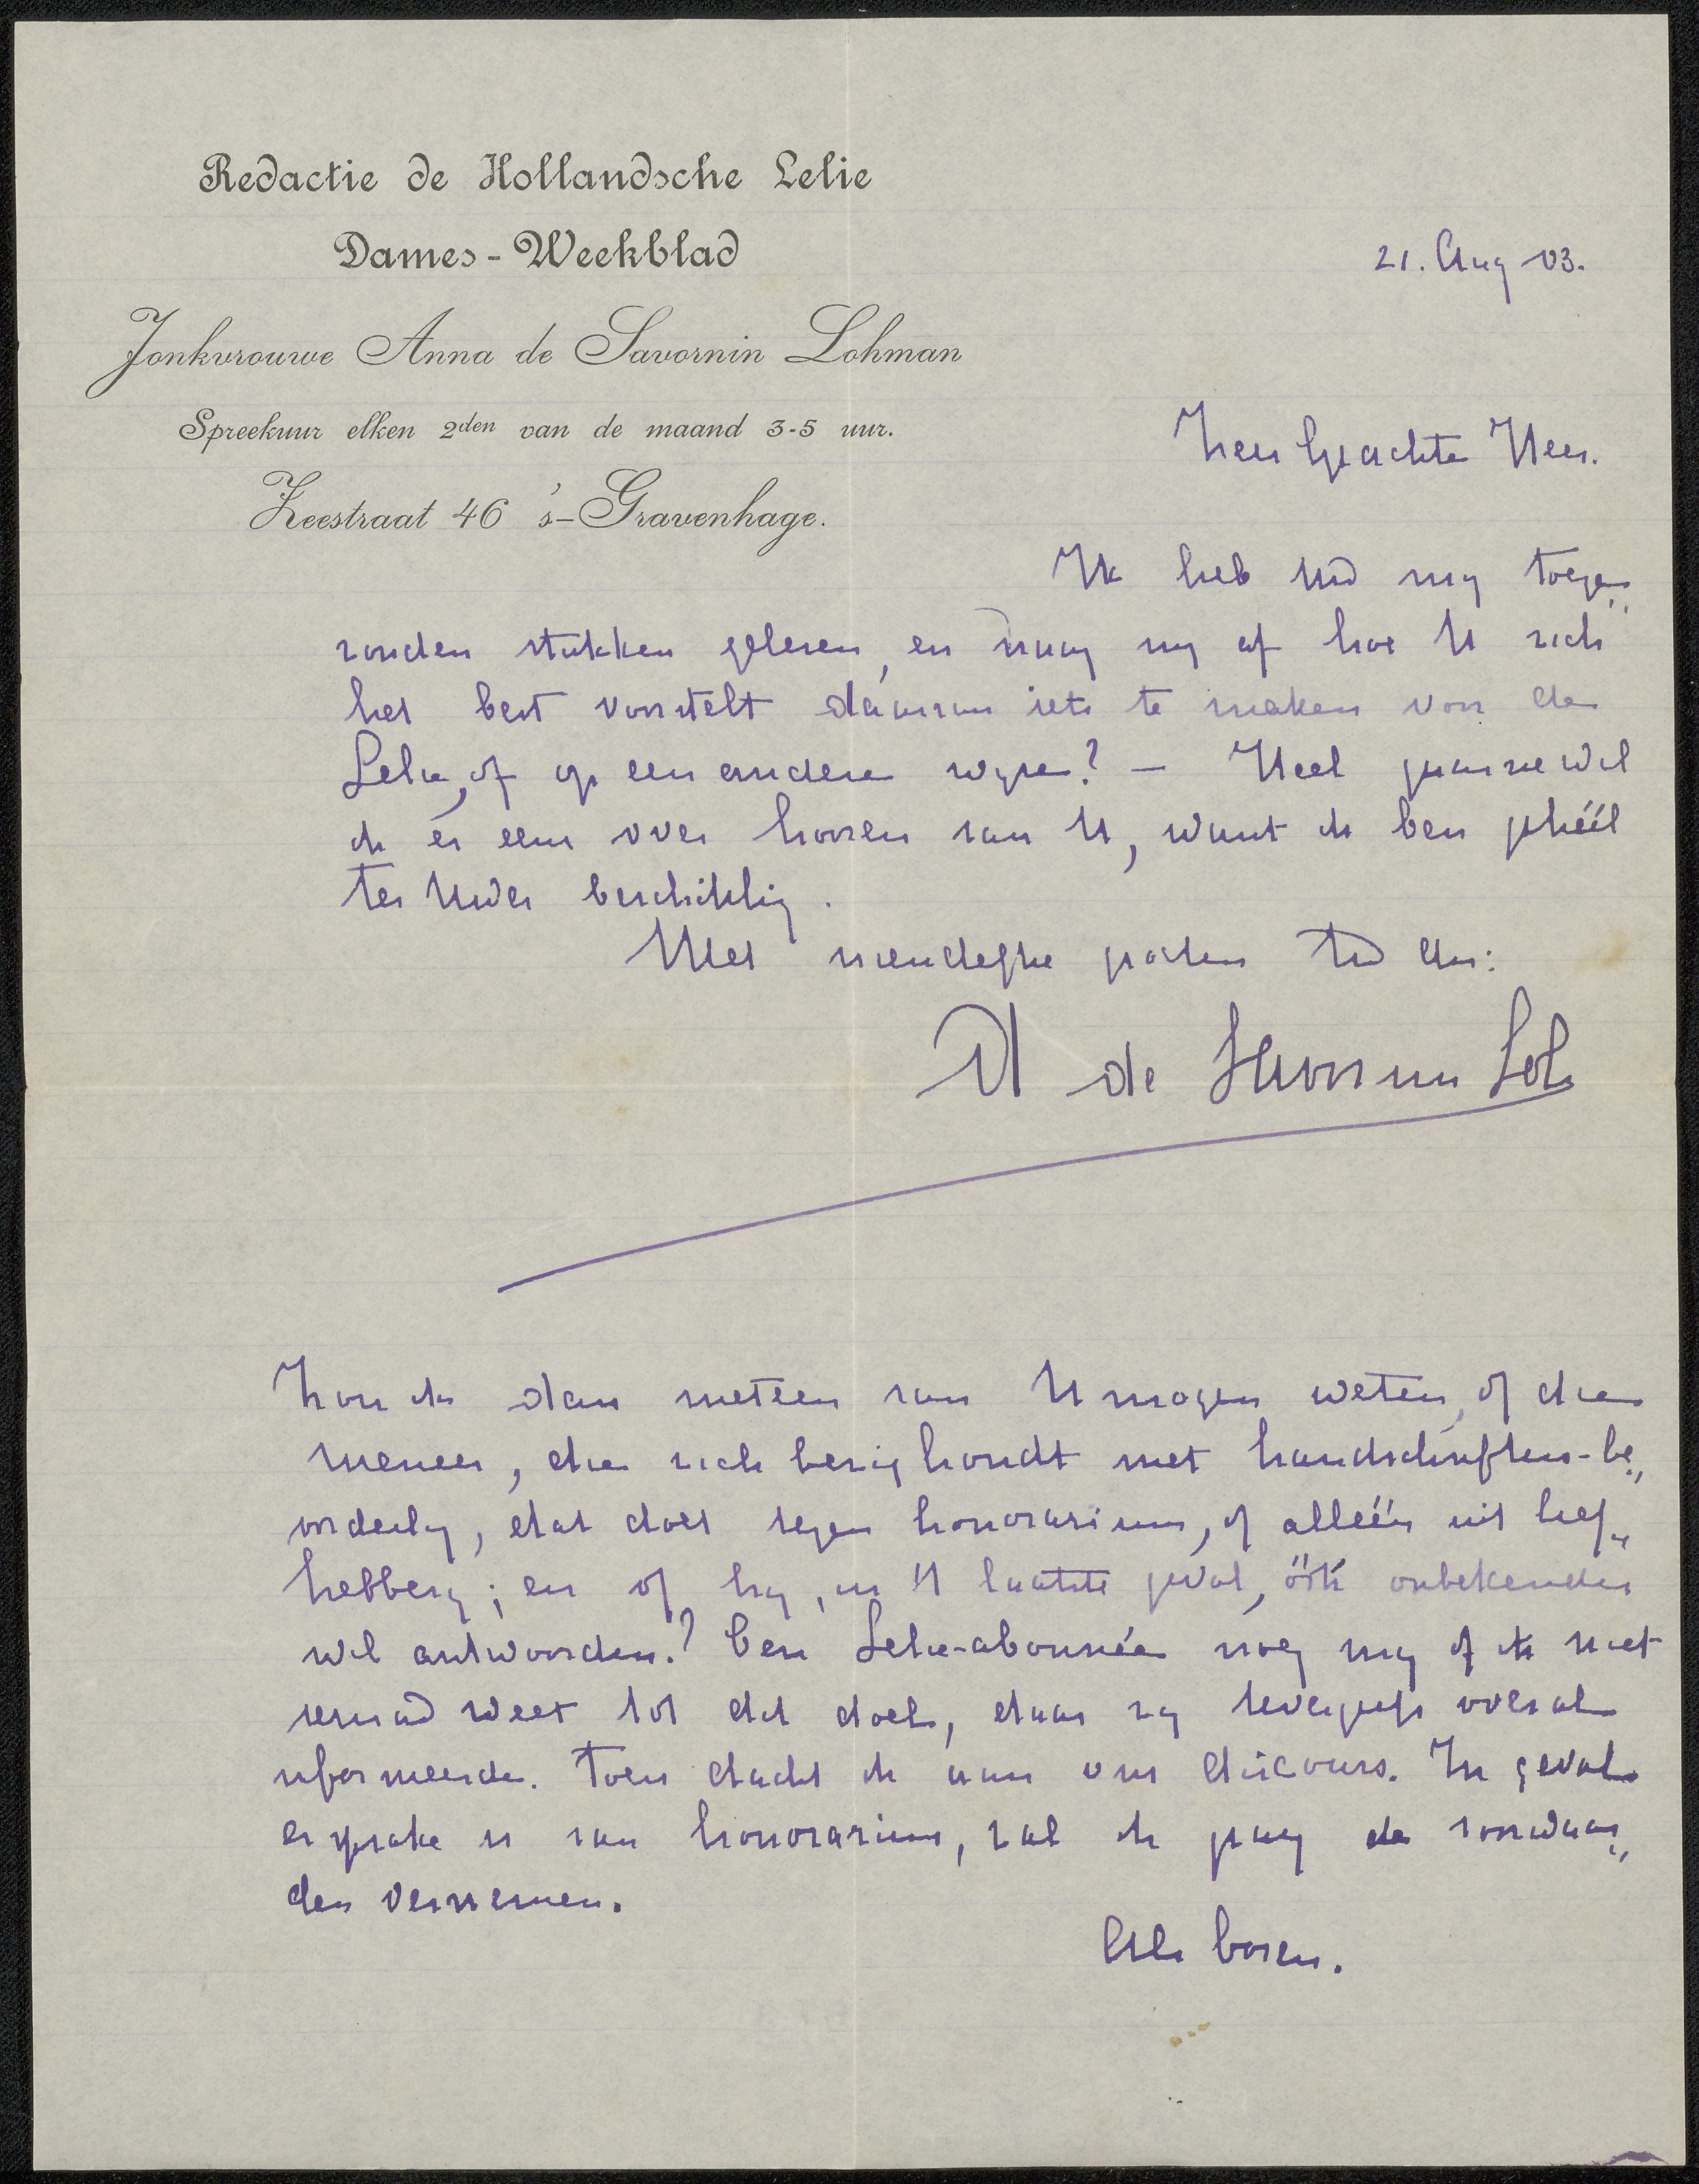 Redactie de Hollandsche Lelie
Dames-Weekblad
21. Aug 03.
Jonkvrouwe Anna de Savornin Lohman
Spreekuur elken 2den van de maand 3-5 uur.
Zeer Geachte Heer.
Zeestraat 46 's-Gravenhage.
Ik heb de mij toege„
zonden stukken gelezen, en vraag mij af hoe U zich
het best voorstelt daarvan iets te maken voor de
Lelie, of op een andere wijze? — Heel gaarne wil
ik er eens over hooren van U, want ik ben gehéél
ter Uwer beschikking.
Met vriendelijke groeten
A de Savornin Loh
Zou ik dan meteen van U mogen weten, of die
meneer, die zich bezig houdt met handschriften-be„
oordeelg, dat doet tegen honorarium, of alléén uit lief„
hebberij; en of hij, in 't laatste geval, óók onbekenden
wil antwoorden? Een Lelie-abonnée vroeg mij of ik niet
iemand weet tot dit doel, daar zij tevergeefs overal
informeerde. Toen dacht ik aan ons discours. In geval
er sprake is van honorarium, zal ik graag de voorwaar„
den vernemen.